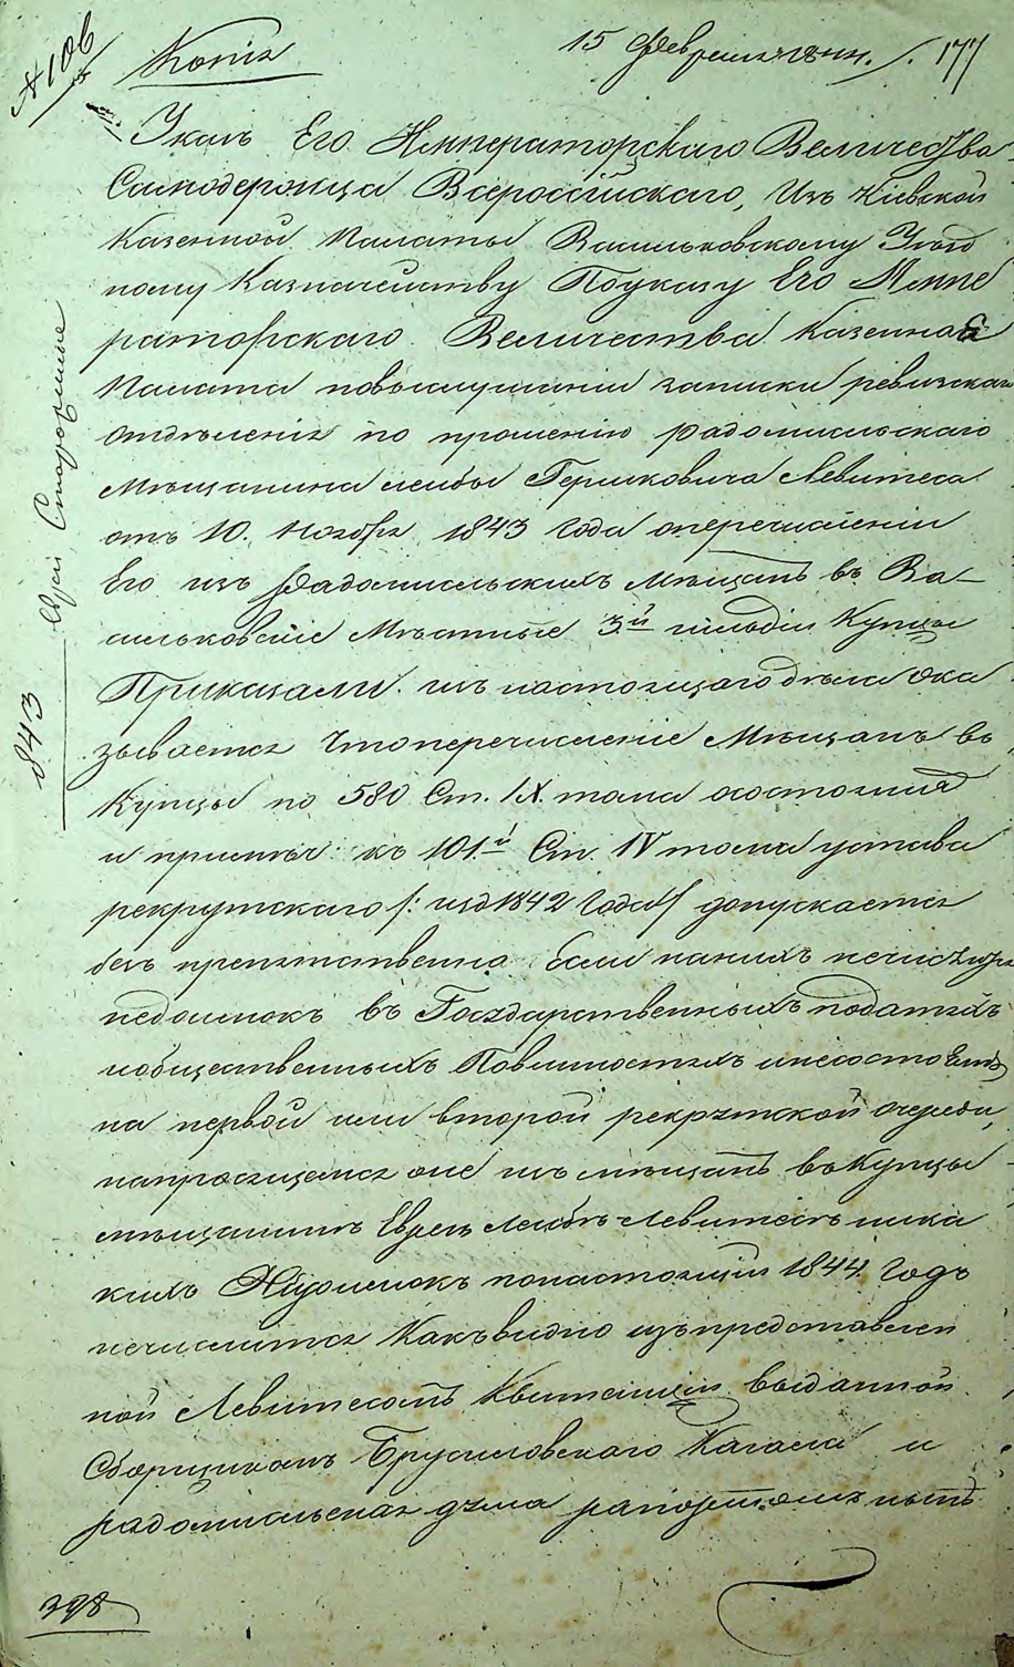 № 106
Копія
15 Февраля 1844. 177
Указъ Его Императорскаго Величества
Самодержца Всероссійскаго, Изъ Кіевской
Казенной Палаты Васильковскому Уѣзд
ному Казначейству Поуказу Его Импе
раторскаго Величества Казенная
Палата повыслушаніи записки ревизскаго
отдѣленія по прошенію радомысльскаго
Мѣщанина Лейбы Гершковича Левитеса
отъ 10. Ноября 1843 Года оперечисленіи
Его изъ Радомысльскихъ Мѣщанъ въ Ва-
сильковскіе Мѣстные 3й гильдіи Купцы
Приказали. изъ настоящаго дѣла ока
зывается Чтоперечисленіе Мѣщанъ въ
Купцы по 580 Ст. IX. тома осостояніи
и примѣч: къ 101й Ст. IV тома устава
рекрутскаго /: изд 1842 Года/ допускается
безъ препятственно Если нанихъ нечислится
недоимокъ въ Государственныхъ податяхъ
иобщественныхъ Повинностяхъ инесостоятъ
на первой или второй рекрутской очереди,
напросящемся оне изъ мѣщанъ въКупцы
мѣщанинѣ Евреѣ Лейбѣ Левитесѣ ника
кихъ Недоимокъ понастоящій 1844 Годъ
нечислится Какъвидно изъпредставлен
ной Левитесомъ Квитанціи выданной
Сборщикомъ Брусиловскаго Кагала и
радомысльская дума рапортомъ
1843 Евреи
398